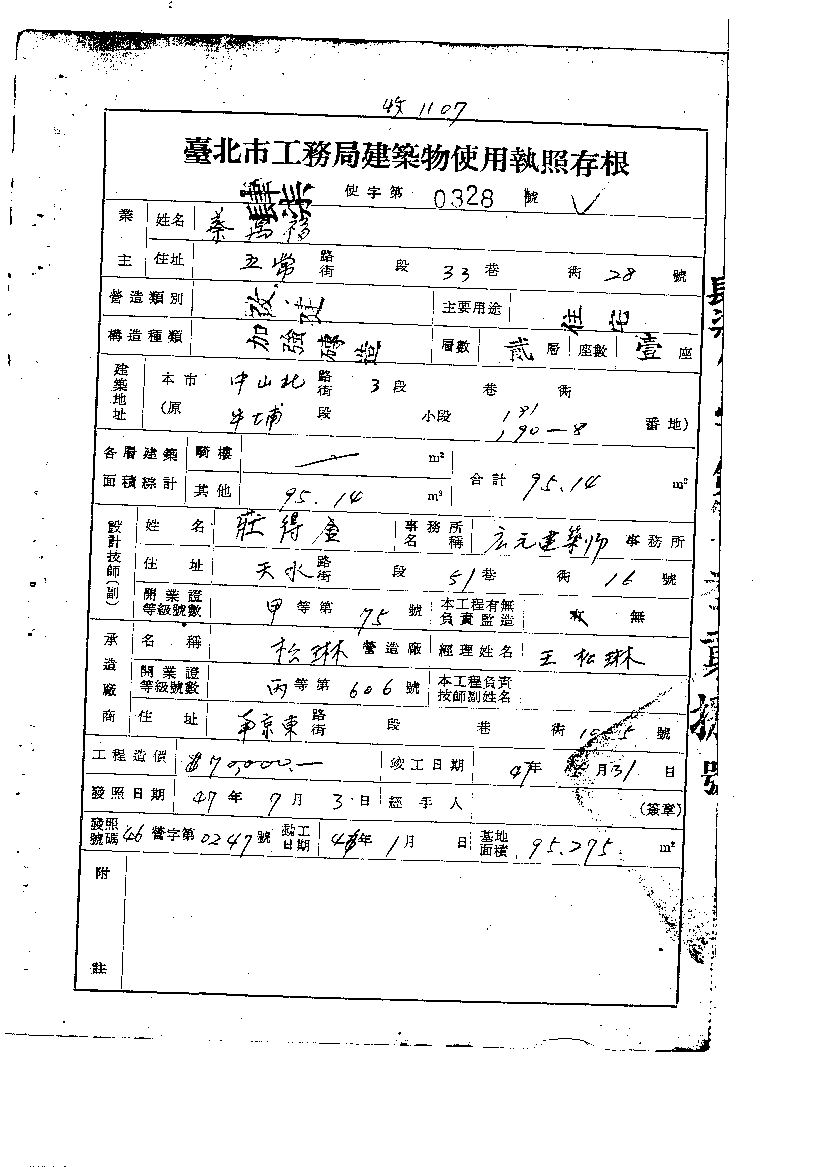 收1107
臺北市工務局建築物使用執照存根
肆柒 使字第 0328 號
業主 姓名 蔡萬福
住址 五常 路街 段 33 巷 衖 28 號
營造類別 改建 主要用途 住宅
構造種類 加強磚造 層數 貳 層 座數 壹 座
建築地址 本市 中山北 路街 3 段 巷 衖
(原 牛埔 段 小段 191 190-8 番地)
各層建築面積綜計 騎樓 — m² 合計 95.14 m²
其他 95.14 m²
設計技師(副) 姓名 莊得 事務所名稱 広元建築物 事務所
住址 天水 路街 段 51 巷 衖 16 號
開業證等級號數 甲 等第 75 號 本工程有無負責監造 有 無
承造廠商 名稱 松琳 營造廠 經理姓名 王松琳
開業證等級號數 丙 等第 606 號 本工程負責技師副姓名
住址 南京東 路街 段 巷 衖 號
工程造價 $70,000.— 竣工日期 47 年 月 31 日
發照日期 47 年 7 月 3 日 經手人 (簽章)
發照號碼 46 營字第 0247 號 動工日期 年 1 月 日 基地面積 95.275 m²
附註